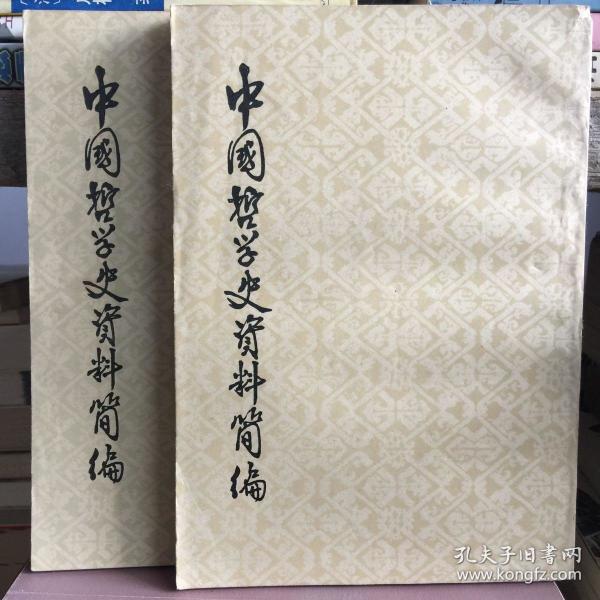 中國哲学史資料简编
中國哲学史資料简编
孔夫子旧書网
www.kongfz.com